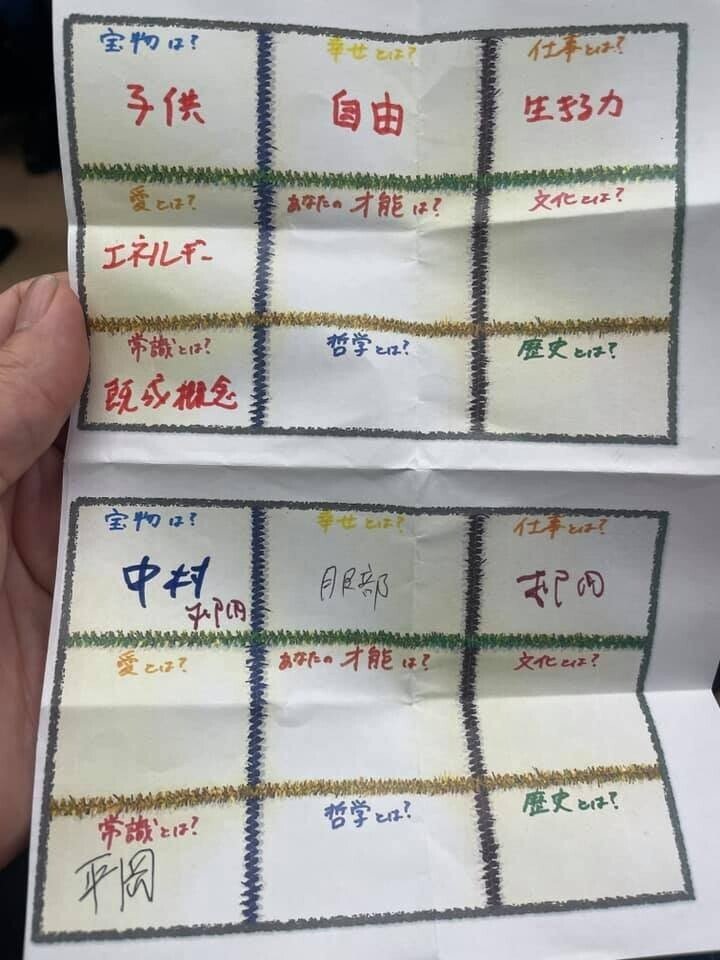 宝物は?
幸せとは?
仕事とは?
子供
自由
生きる力
愛とは?
あなたの才能は?
文化とは?
エネルギー
常識とは?
哲学とは?
歴史とは?
既成概念
宝物は?
幸せとは?
仕事とは?
中村
服部
愛とは?
あなたの才能は?
文化とは?
常識とは?
哲学とは?
歴史とは?
平岡